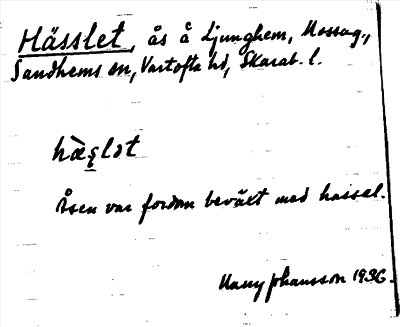 Hässlet, ås å Ljunghem, Mossag.,
Sandhems sn, Vartofta hd, Skarab. l.
Åsen var fordom beväxt med hassel.
Harry Johansson 1936.